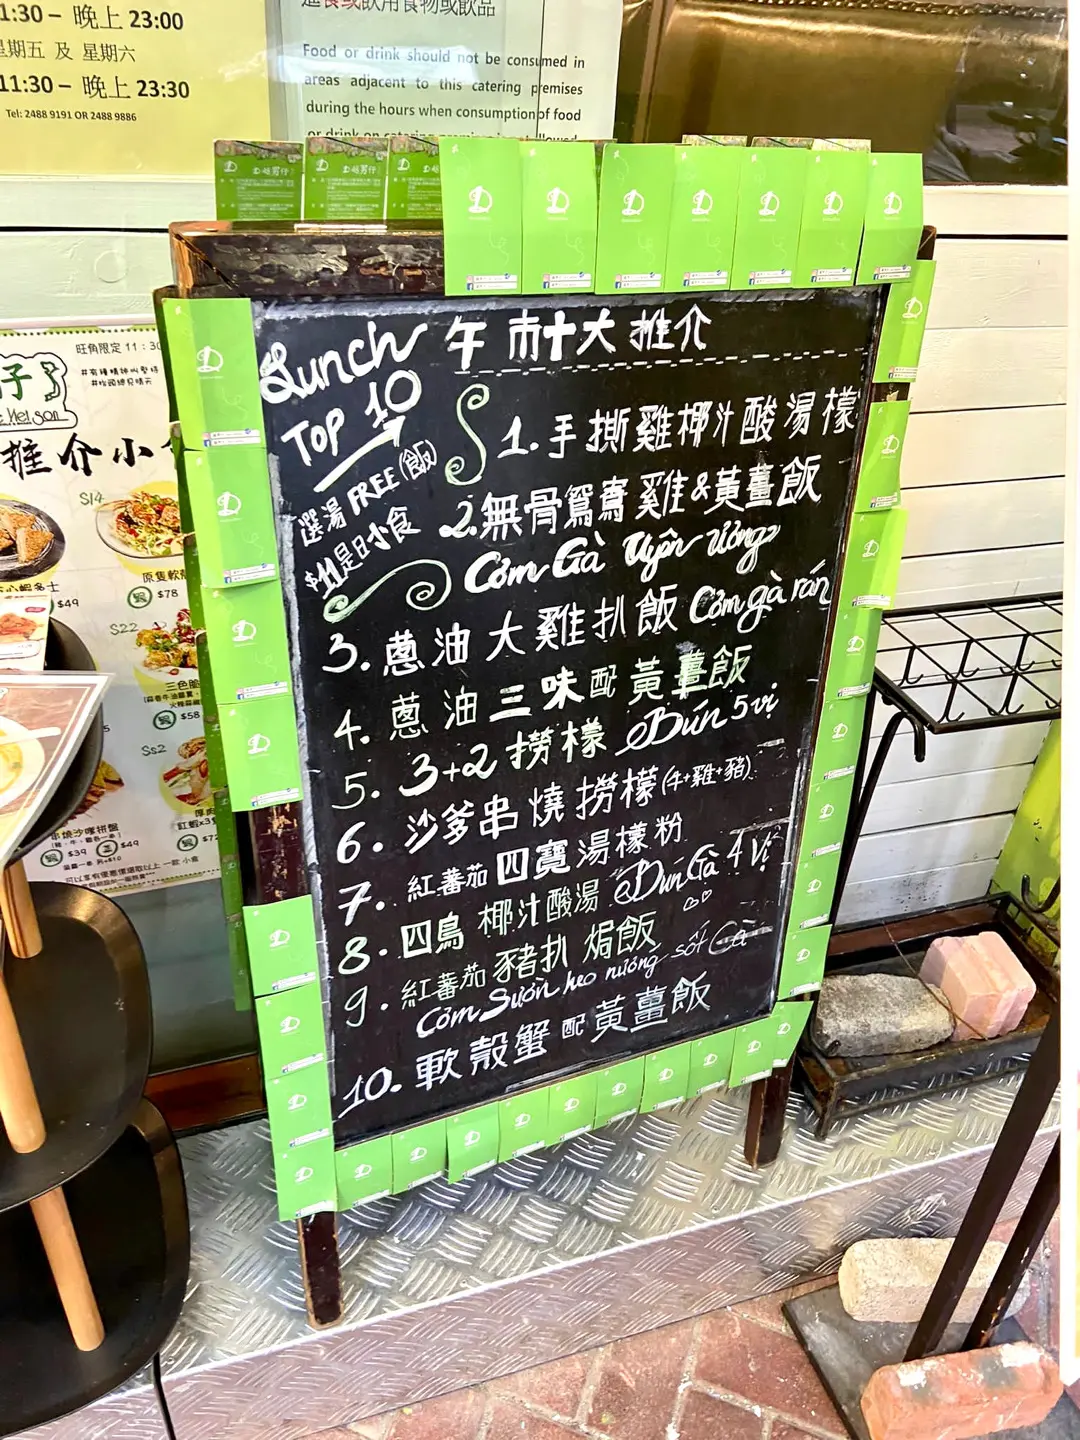 1:30 – 晚上 23:00
星期五 及 星期六
11:30 – 晚上 23:30
Tel: 2488 9191 OR 2488 9886
食或飲用食物或飲品
Food or drink should not be consumed in
areas adjacent to this catering premises
during the hours when consumption of food
Lunch 午市十大推介
TOP 10
選湯 FREE (飯)
$11是日小食
1. 手撕雞椰汁酸湯檬
2. 無骨鴛鴦雞&黃薑飯
Cơm Gà Uyên ương
3. 蔥油大雞扒飯 Cơm gà rán
4. 蔥油三味配黃薑飯
5. 3+2撈檬 Bún 5 vị
6. 沙爹串燒撈檬(牛+雞+豬)
7. 紅蕃茄四寶湯檬粉
8. 四鳥椰汁酸湯 Bún Gà 4 Vị
9. 紅蕃茄豬扒焗飯
Cơm Sườn heo nướng sốt Cà
10. 軟殼蟹配黃薑飯
旺角限定 11:30
推介小
S14
$49
原隻軟殼
$78
S22
三色
$58
SS2
串燒沙嗲拼盤
$39
$49
紅蝦x3